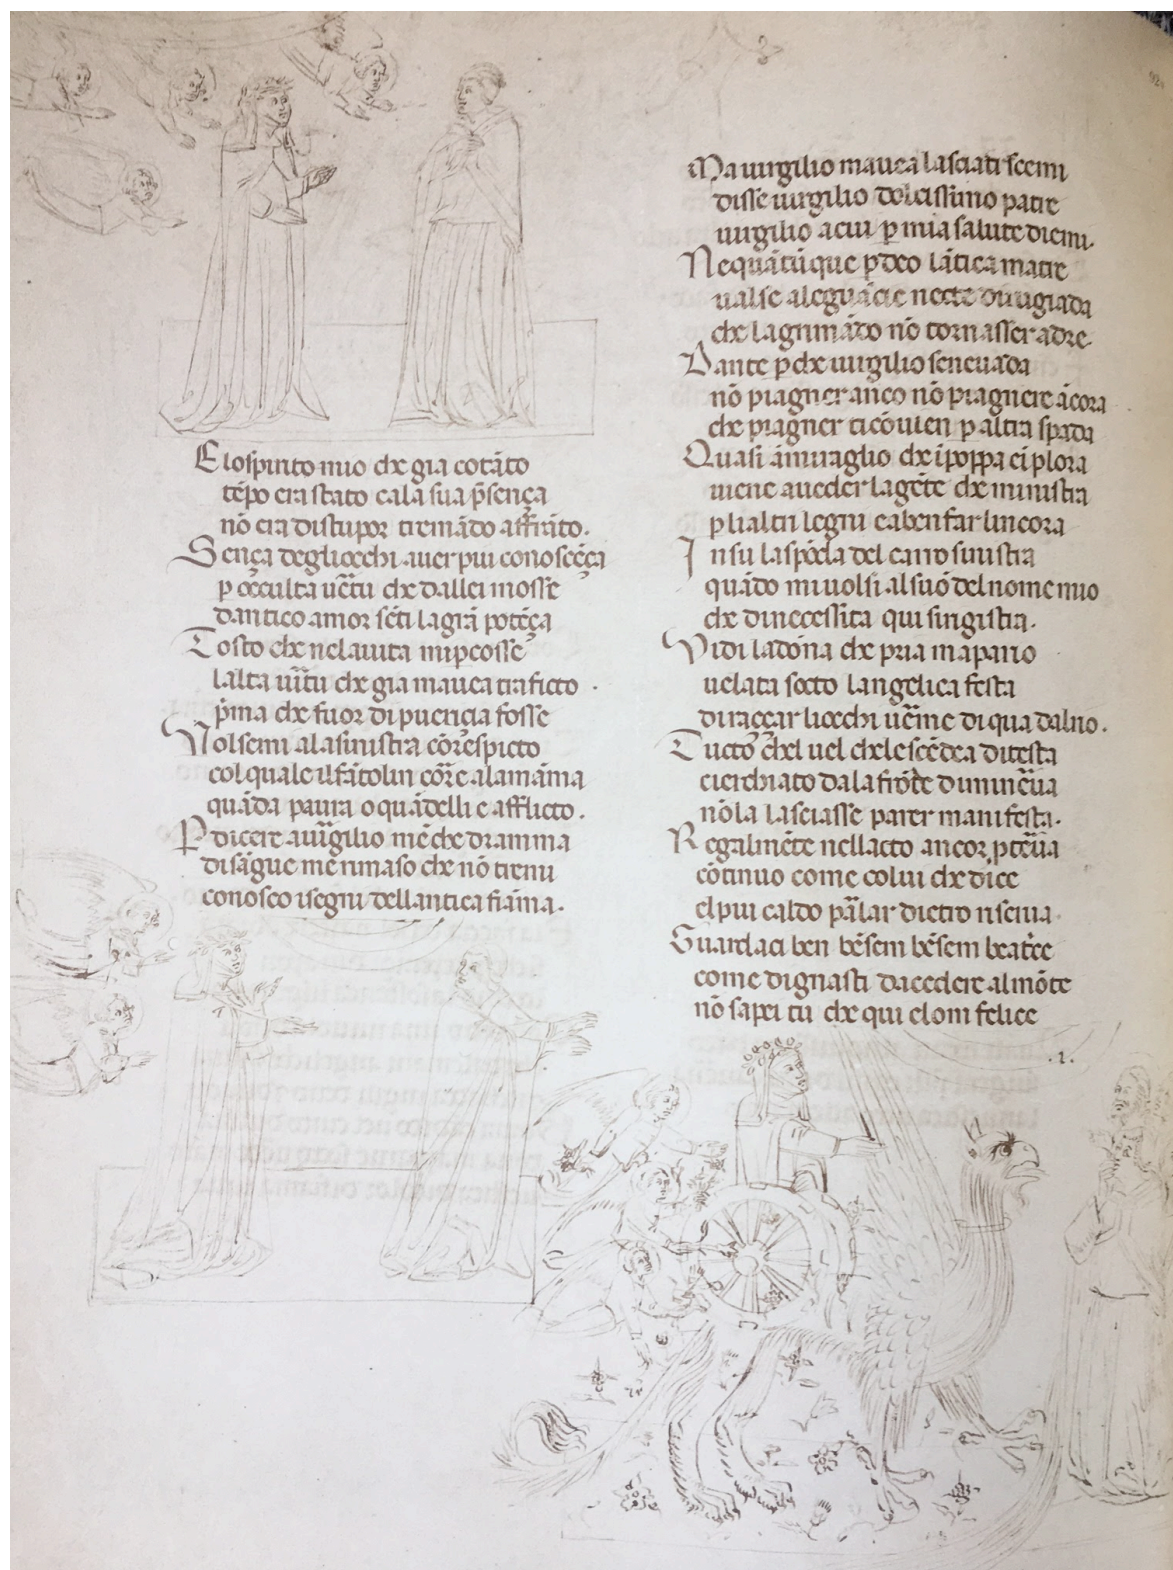 E lo spirito mio che gia cotāto
tēpo era stato cala sua p̄sença
nō era distupor tremādo affrāto.
Sença degliocchi auer piu conoscēça
p̱ occulta uētu che dallei mosse
dantico amor sēti la grā potēça
Tosto che nela uista mi p̱cosse
lalta uītu che gia mauea traficto .
p̄ma che fuor di puericia fosse
Volsemi ala sinistra cōrespicto
col quale il fātolin cōre ala māma
quāda paura o quādelli e afflicto.
P̱ dicere a uirgilio mēche dramma
di sāgue me rimaso che nō tremi
conosco isegni dellantica fiāma.
Ma uirgilio mauea lasciati scemi
disse uirgilio dolcissimo patre
uirgilio a cui p̱ mia salute diemi.
Ne quātūque p̱deo lātica matre
ualse ale guācie nette di rugiada
che lagrimādo nō tornasser adre.
Dante p̱che uirgilio seneuada
nō piagner anco nō piagnere ācora
che piagner ti cōuien p̱ altra spada
Quasi āmiraglio che ī poppa eī plora
uiene aueder la gēte che ministra
p̱ li altri legni e a ben far lincora
In su la spōda del carro sinistra
quādo mi uolsi al suō del nome mio
che di necessita qui si ngistra.
Vidi la dōna che pria mapario
uelata sotto langelica festa
diraççar liocchi uēme di qua dal rio.
Tucto chel uel che le scēdea di testa
cierchiato dala frōde di minēua
nō la lasciasse parer manifesta.
Regalmēte nellacto ancor p̱tēua
cōtinuo come colui che dice
el piu caldo pālar dietro riserua
Guardaci ben bēsem bēsem beatrice
come dignasti dacedere al mōte
nō sapei tu che qui e lom felice
.1.